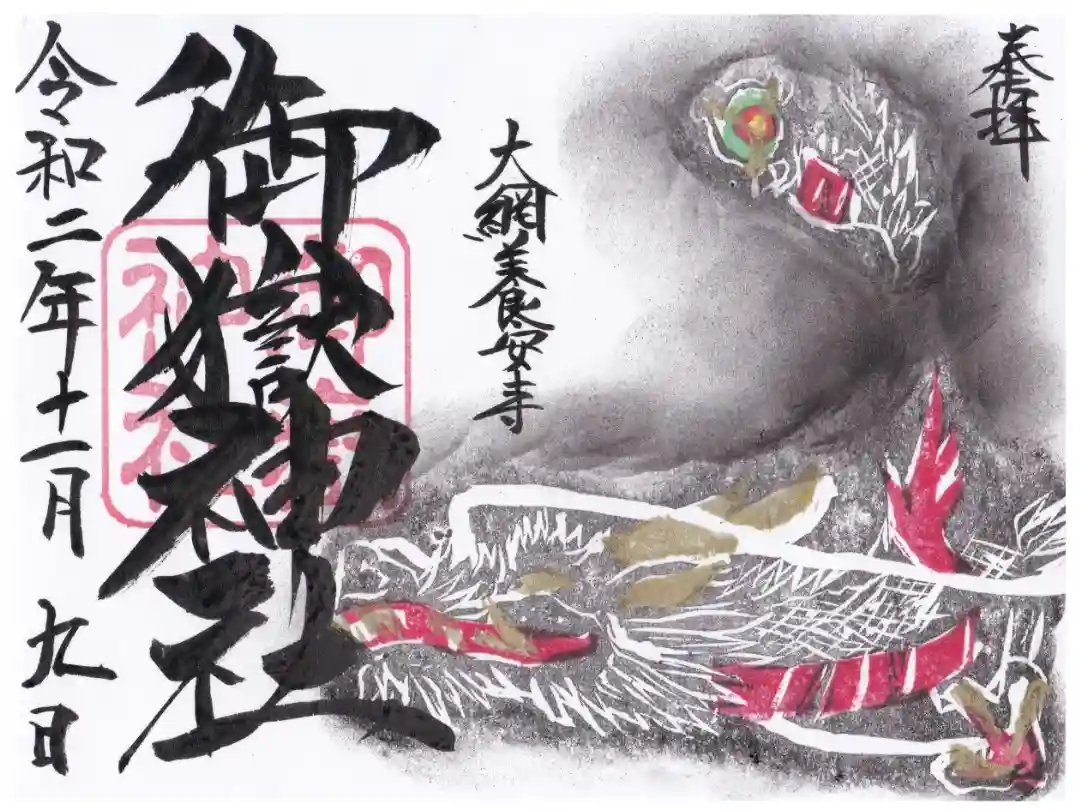 奉拝
大網養安寺
御嶽神社
御嶽神社
令和二年十一月九日